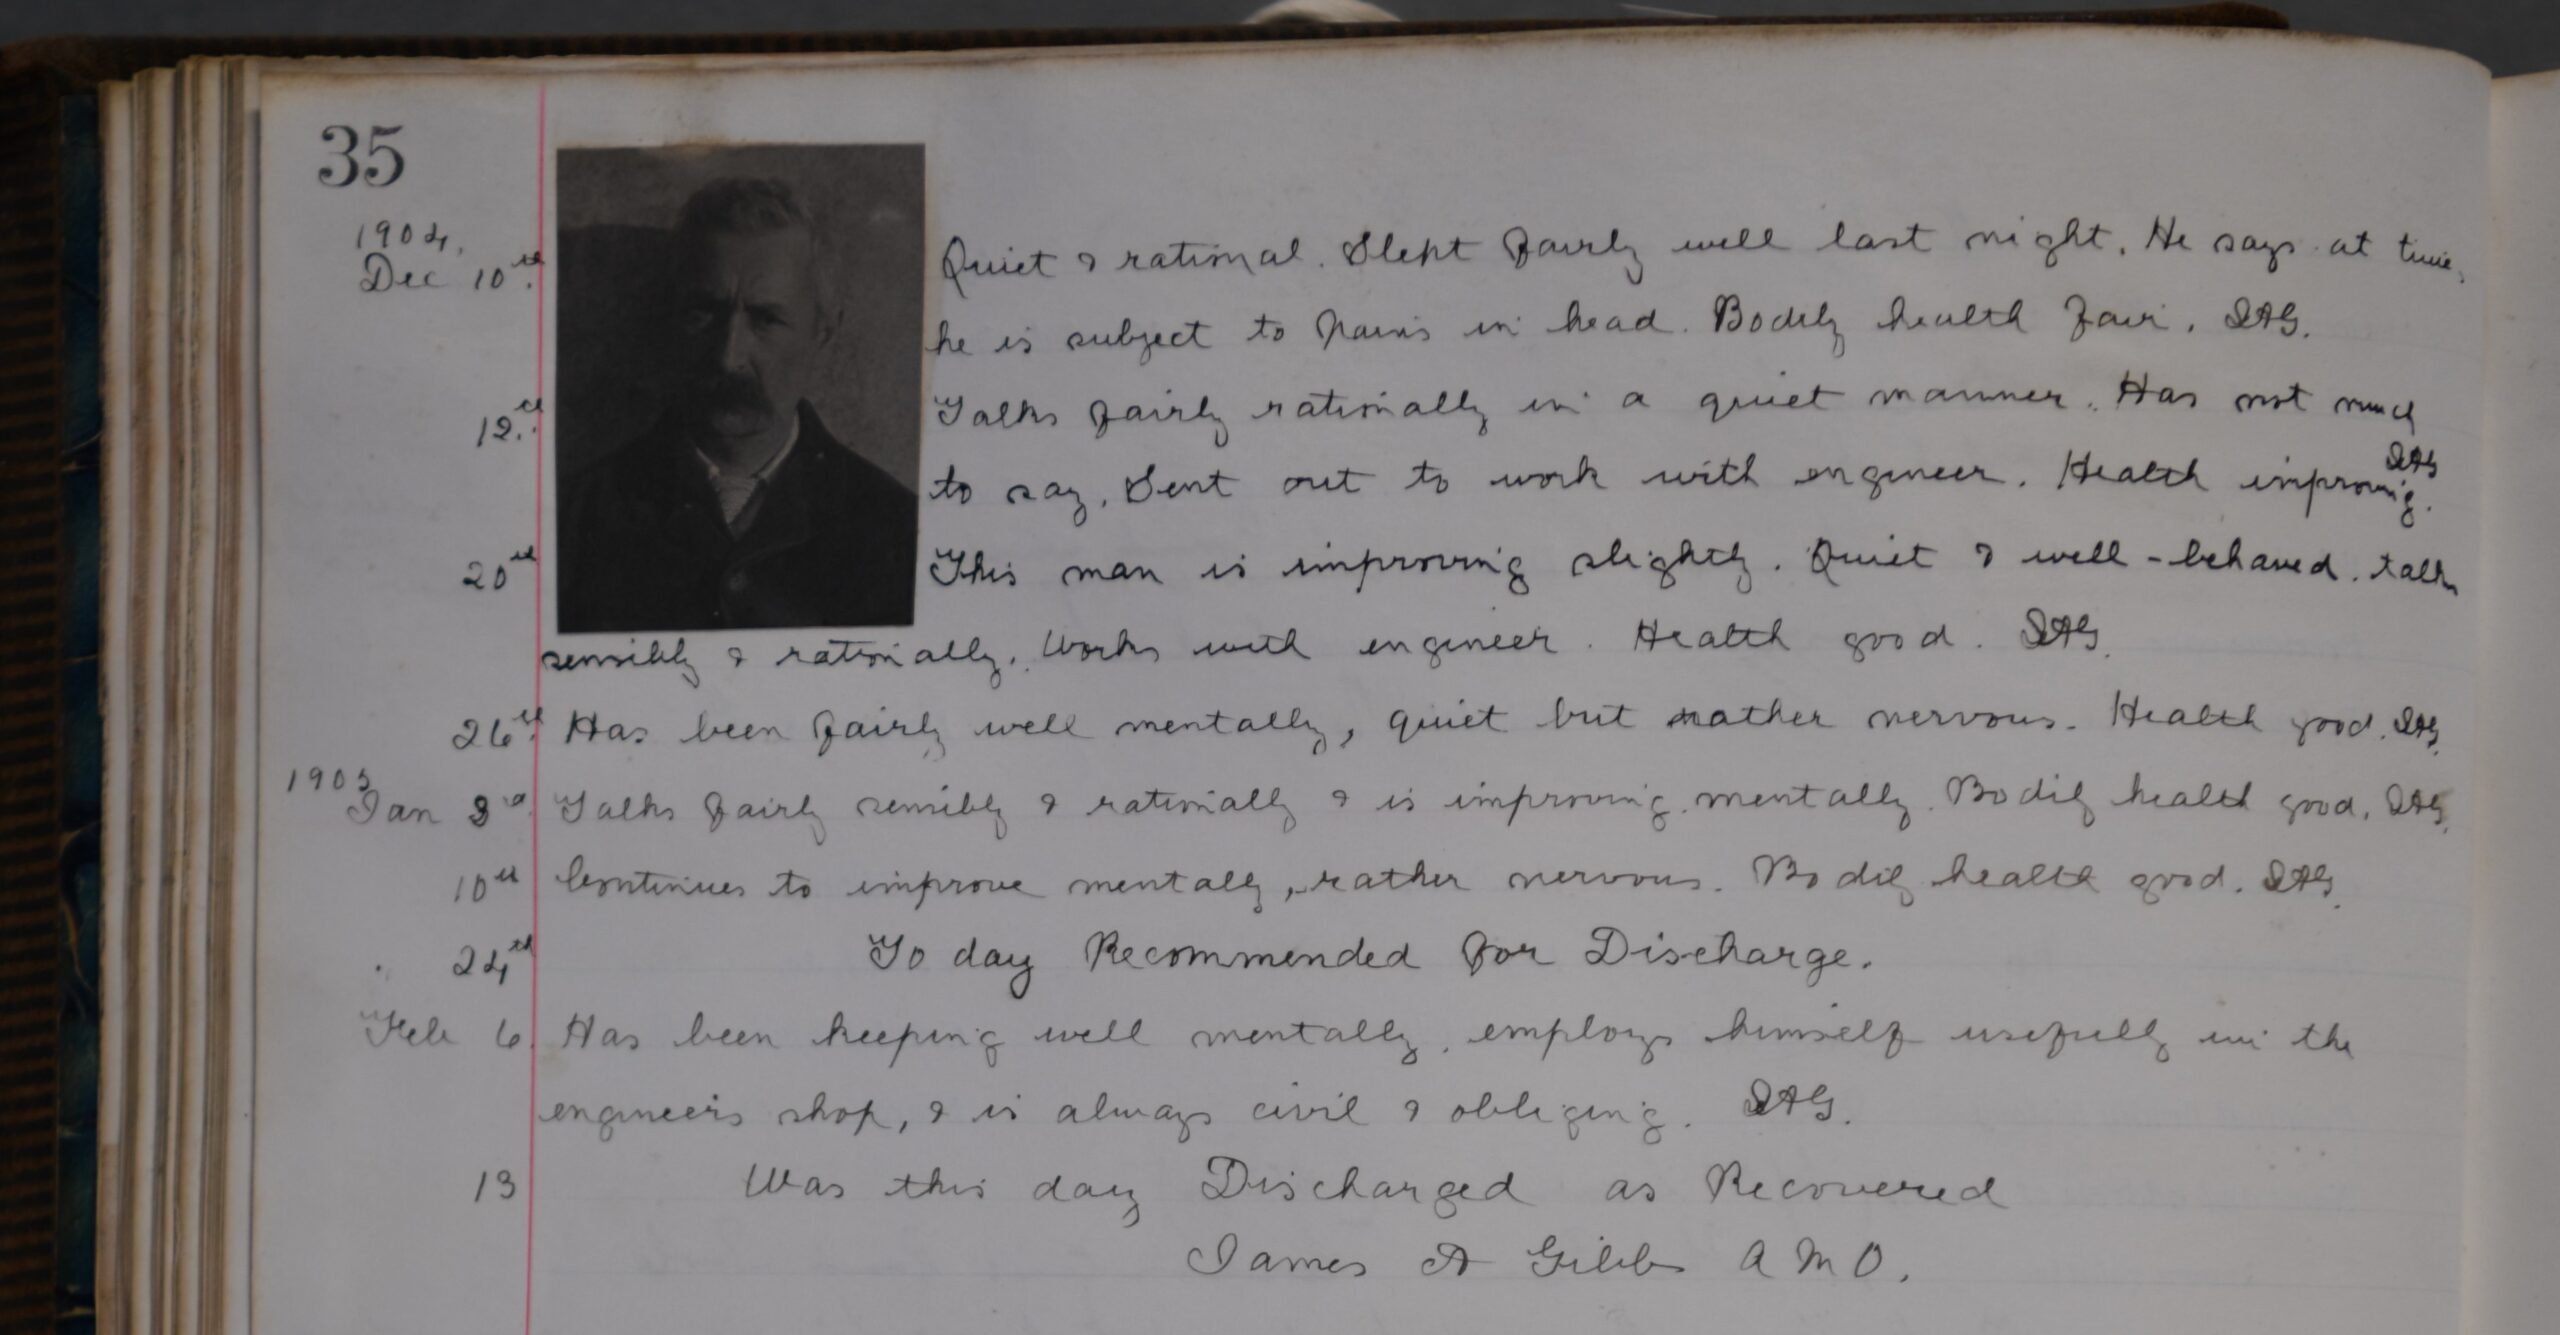 35
1904.
Dec 10th. Quiet & rational. Slept fairly well last night. He says at times
he is subject to pains in head. Bodily health fair. JAG.
12th. Talks fairly rationally in a quiet manner. Has not much
to say. Sent out to work with engineer. Health improving. JAG
20th This man is improving slightly. Quiet & well-behaved. talks
sensibly & rationally. Works with engineer. Health good. JAG.
26th. Has been fairly well mentally, quiet but rather nervous. Health good. JAG.
1905
Jan 3rd. Talks fairly sensibly & rationally & is improving mentally. Bodily health good. JAG.
10th Continues to improve mentally, rather nervous. Bodily health good. JAG.
24th To day Recommended for Discharge.
Feb 6. Has been keeping well mentally. employs himself usefully in the
engineers shop, & is always civil & obliging. JAG.
13 Was this day Discharged as Recovered
James A Gibb A M O.